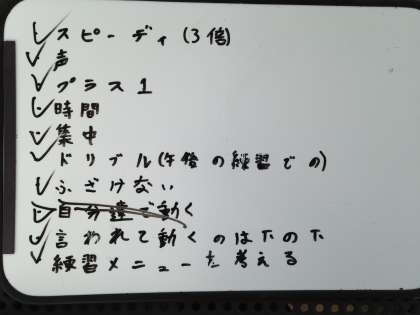 スピーディ(3倍)
声
プラス1
時間
集中
ドリブル(午後の練習での)
ふざけない
自分達で動く
言われて動くのは下の下
練習メニューを考える